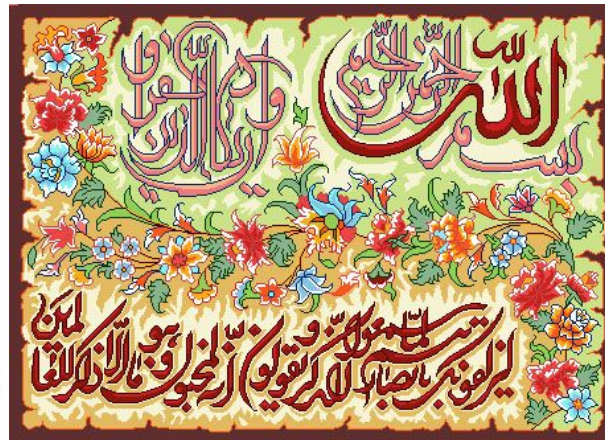 بسم الله الرحمن الرحيم
و ان يكاد الذين كفروا
ليزلقونك بابصارهم لما سمعوا الذكر و يقولون انه لمجنون و ما هو الا ذكر للعالمين